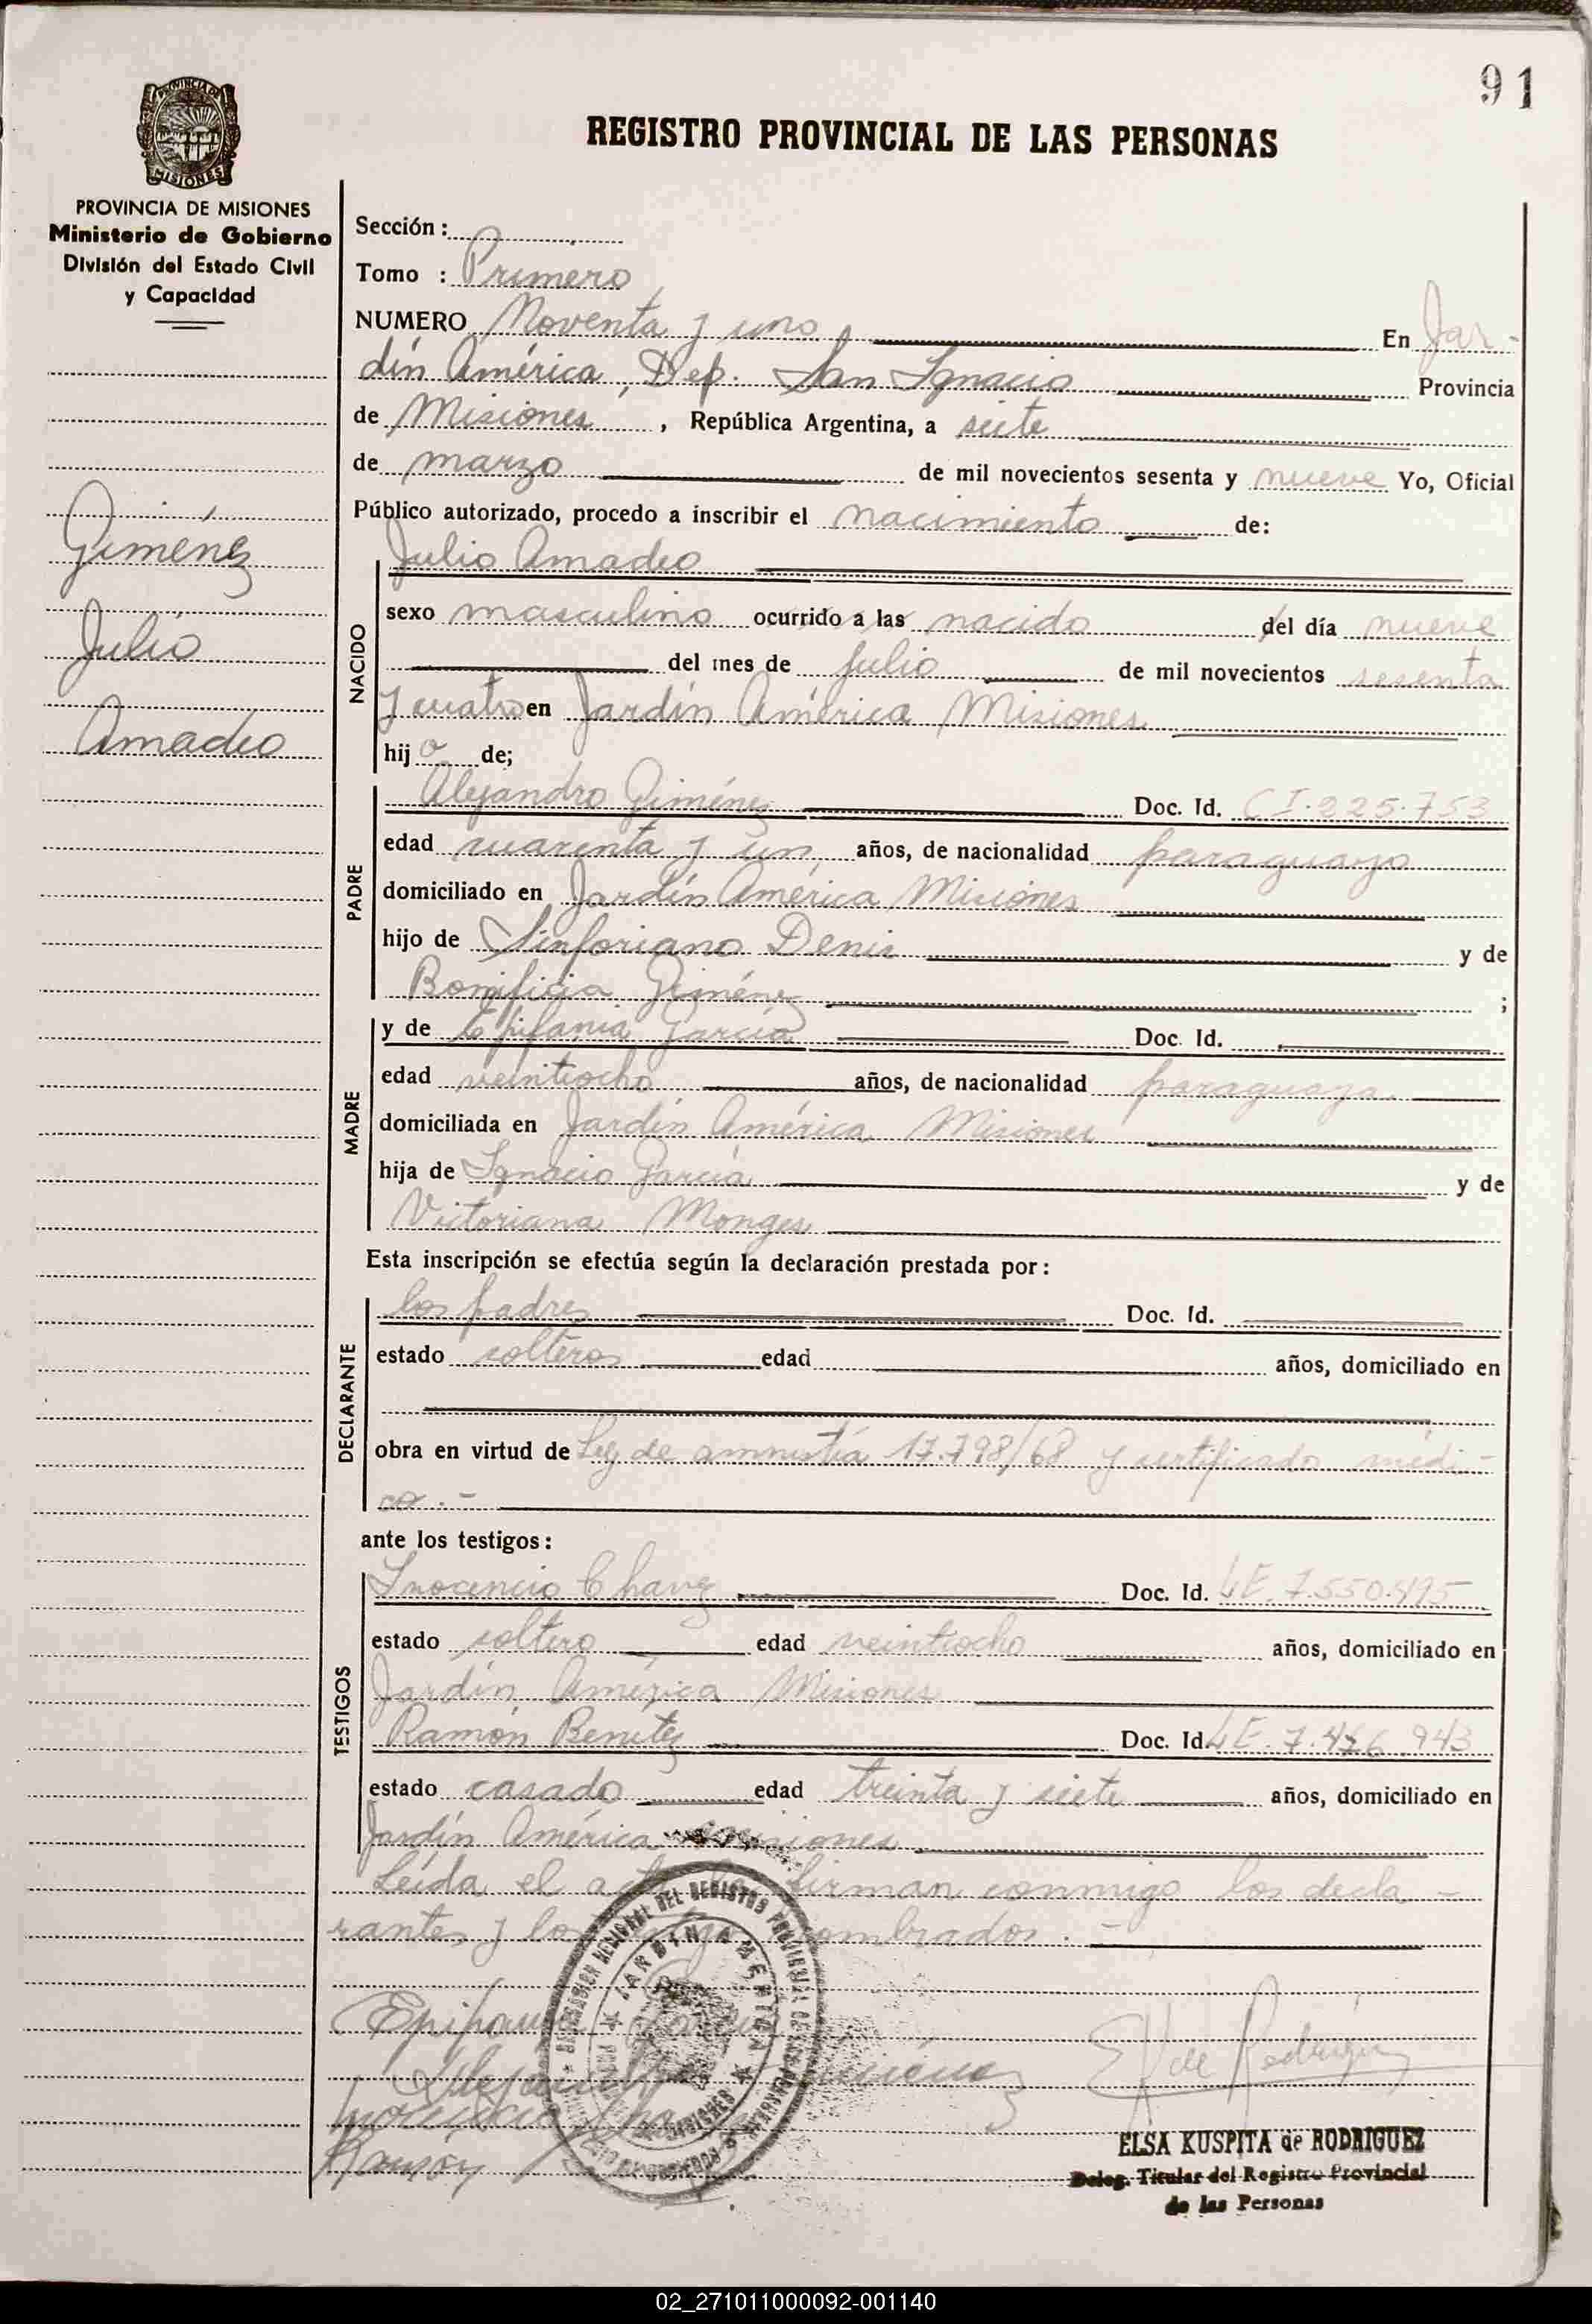 91
REGISTRO PROVINCIAL DE LAS PERSONAS
PROVINCIA DE MISIONES
Ministerio de Gobierno
División del Estado Civil
y Capacidad
Giménez
Julio
Amadeo
Sección :
Tomo : Primero
NUMERO Noventa y uno En Jar-
dín América, Dep. San Ignacio Provincia
de Misiones , República Argentina, a siete
de marzo de mil novecientos sesenta y nueve Yo, Oficial
Público autorizado, procedo a inscribir el nacimiento de:
NACIDO
Julio Amadeo
sexo masculino ocurrido a las nacido del día nueve
del mes de julio de mil novecientos sesenta
y cuatro en Jardín América Misiones
hijo de;
PADRE
Alejandro Giménez Doc. Id. CI.225.753
edad cuarenta y un años, de nacionalidad paraguayo
domiciliado en Jardín América Misiones
hijo de Sinforiano Denis y de
Bonificia Giménez ;
MADRE
y de Epifania García Doc. Id.
edad veintiocho años, de nacionalidad paraguaya.
domiciliada en Jardín América Misiones
hija de Ignacio García y de
Victoriana Monges
Esta inscripción se efectúa según la declaración prestada por:
DECLARANTE
los padres Doc. Id.
estado solteros edad años, domiciliado en
obra en virtud de Ley de amnistía 17.798/68 y certificado médi-
co.-
ante los testigos:
TESTIGOS
Inocencio Chavez Doc. Id. LE.7.550.495
estado soltero edad veintiocho años, domiciliado en
Jardín América Misiones
Ramón Benítez Doc. Id. LE.7.476.943
estado casado edad treinta y siete años, domiciliado en
Jardín América Misiones
Leída el acta firman conmigo los decla-
rantes y los testigos nombrados.-
JARDIN AMERICA
MISIONES
Epifania García
Alejandro Giménez
Inocencio Chavez
Ramón
E K de Rodriguez
ELSA KUSPITA de RODRIGUEZ
Deleg. Titular del Registro Provincial
de las Personas
02_271011000092-001140